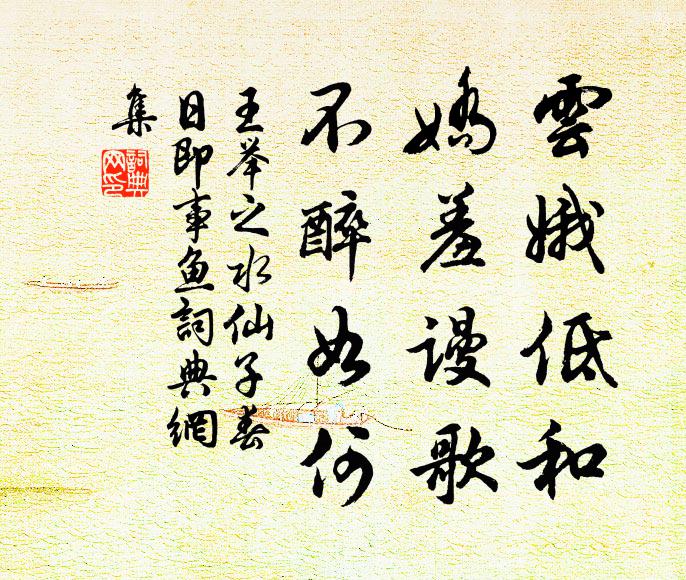 雲娥低和
嬌羞謾歌
不醉如何
王举之水仙子春
日即事鱼詞典網
集
詞典
网印